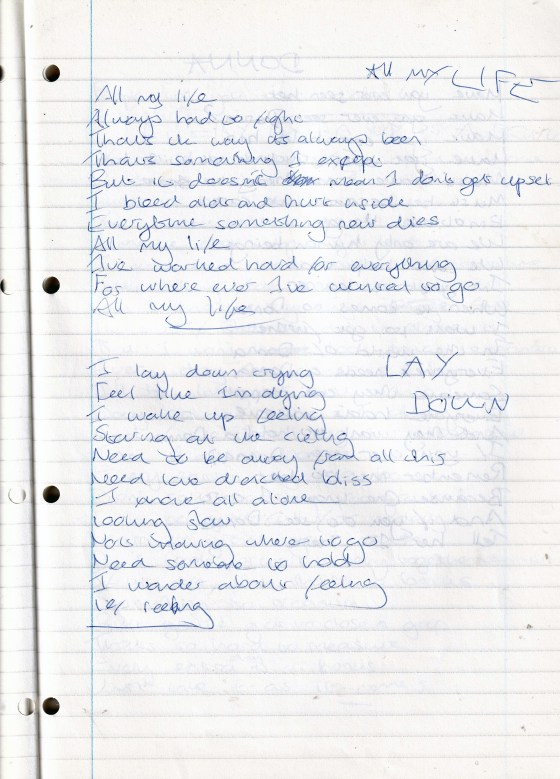 All my LIFE
All my life
Always had to fight
Thats the way its always been
Thats something I expept
But it doesnt mean I dont get upset
I bleed alot and hurt inside
Everytime something new dies
All my life
I've worked hard for everything
For where ever I've wanted to go
All my life
LAY DOWN
I lay down crying
Feel like Im dying
I wake up feeling
Staring at the cieling
Need to be away from all this
Need love drenched bliss
I move all alone
looking slow
Not knowing where to go
Need someone to hold
I wonder about feeling